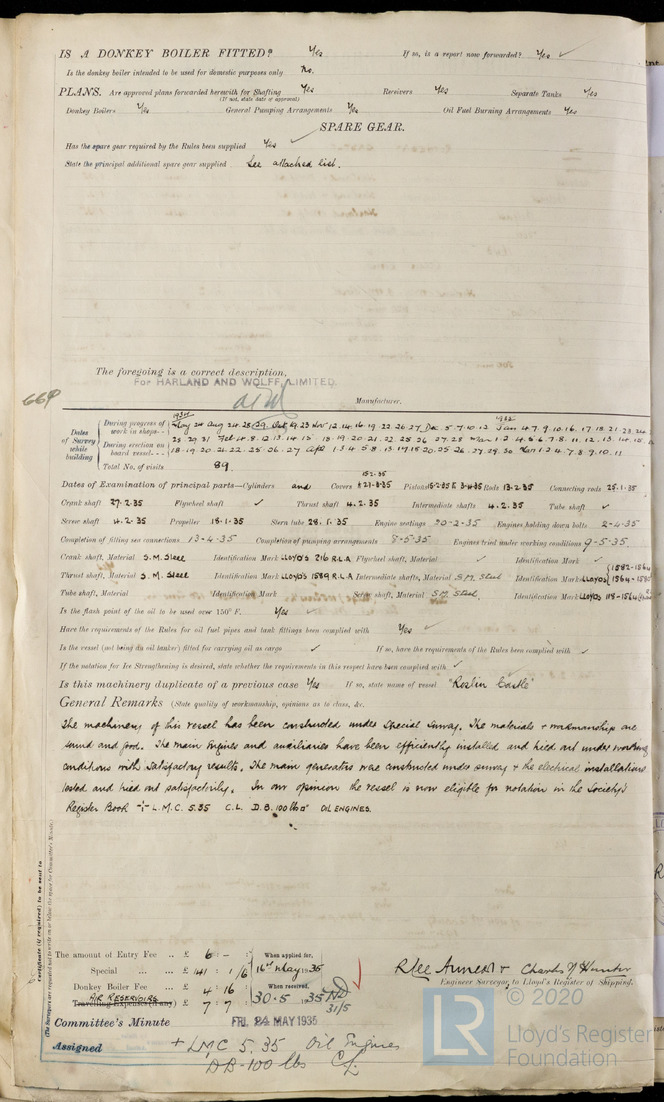 IS A DONKEY BOILER FITTED? Yes If so, is a report now forwarded? Yes ✓
Is the donkey boiler intended to be used for domestic purposes only No.
PLANS. Are approved plans forwarded herewith for Shafting Yes Receivers Yes Separate Tanks Yes
(If not, state date of approval)
Donkey Boilers Yes General Pumping Arrangements Yes Oil Fuel Burning Arrangements Yes
SPARE GEAR.
Has the spare gear required by the Rules been supplied Yes ✓
State the principal additional spare gear supplied See attached list.
The foregoing is a correct description,
For HARLAND AND WOLFF, LIMITED.
669 Manufacturer.
Dates of Survey while building
During progress of work in shops - -
During erection on board vessel - - -
Total No. of visits 89
15-2-35
Dates of Examination of principal parts—Cylinders and Covers Pistons Rods 13-2-35 Connecting rods 25-1-35
Crank shaft 27-2-35 Flywheel shaft ✓ Thrust shaft 4-2-35 Intermediate shafts 4-2-35 Tube shaft ✓
Screw shaft 4-2-35 Propeller 18-1-35 Stern tube 28-1-35 Engine seatings 20-2-35 Engines holding down bolts 2-4-35
Completion of fitting sea connections 13-4-35 Completion of pumping arrangements 8-5-35 Engines tried under working conditions 9-5-35
Crank shaft, Material S.M. Steel Identification Mark LLOYD'S 216 R.L.A Flywheel shaft, Material ✓ Identification Mark ✓
Thrust shaft, Material S.M. Steel Identification Mark LLOYD'S 1589 R.L.A Intermediate shafts, Material S.M. Steel Identification Mark LLOYDS
Tube shaft, Material Identification Mark Screw shaft, Material S.M. Steel. Identification Mark LLOYDS
Is the flash point of the oil to be used over 150° F. Yes ✓
Have the requirements of the Rules for oil fuel pipes and tank fittings been complied with Yes ✓
Is the vessel (not being an oil tanker) fitted for carrying oil as cargo ✓ If so, have the requirements of the Rules been complied with ✓
If the notation for Ice Strengthening is desired, state whether the requirements in this respect have been complied with ✓
Is this machinery duplicate of a previous case Yes If so, state name of vessel "Roslin Castle"
General Remarks (State quality of workmanship, opinions as to class, &c.
The machinery of his vessel has been constructed under Special Survey. The materials + workmanship are
sound and good. The main Engines and auxiliaries have been efficiently installed and tried out under working
conditions with satisfactory results. The main generators were constructed under survey + the electrical installations
tested and tried out satisfactorily. In our opinion the vessel is now eligible for notation in the Society's
Register Book + L.M.C. 5.35 C.L. D.B. 100 lbs OIL ENGINES.
Certificate (if required) to be sent to
(The Surveyors are requested not to write on or below the space for Committee's Minute)
The amount of Entry Fee .. £ 6 : - : When applied for,
Special ... ... £ 141 : 1/6 16th May 1935
Donkey Boiler Fee £ 4 : 16 When received,
AIR RESERVOIRS
Travelling Expenses (if any) £ 7 : 7 : 30.5.1935 31/5
Charles Hunter
Engineer Surveyor to Lloyd's Register of Shipping.
Committee's Minute FRI. 24 MAY 1935
Assigned + LMC 5.35 Oil Engines
DB-100 lbs CL
© 2020
LR Lloyd's Register
Foundation